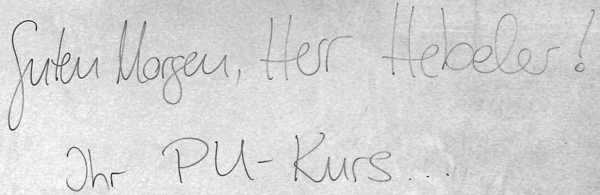 Guten Morgen, Herr Hebeler!
Ihr PU-Kurs...